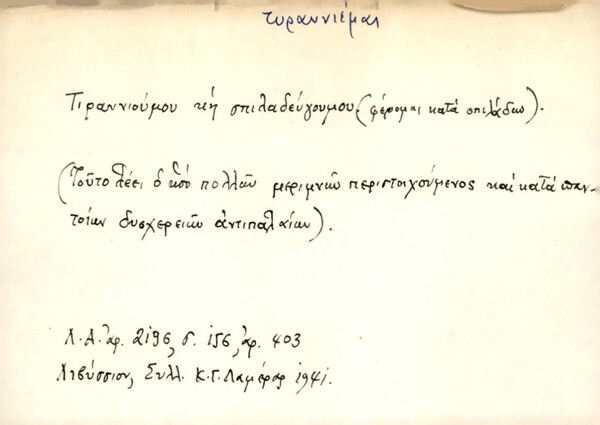 τυραννιέμαι
Τιραννιούμου κή σπιλαδεύγουμου (φέρομαι κατά σπιλάδων).
(Τοῦτο λέει ὁ ὑπό πολλῶν μεριμνῶν περιστοιχούμενος καί κατά παν-
τοίων δυσχερειῶν ἀντιπαλαίων).
Λ.Α. ἀρ. 2196, σ. 156, ἀρ. 403
Λιβύσσιον, Συλλ. Κ.Γ. Λαμέρας 1941.